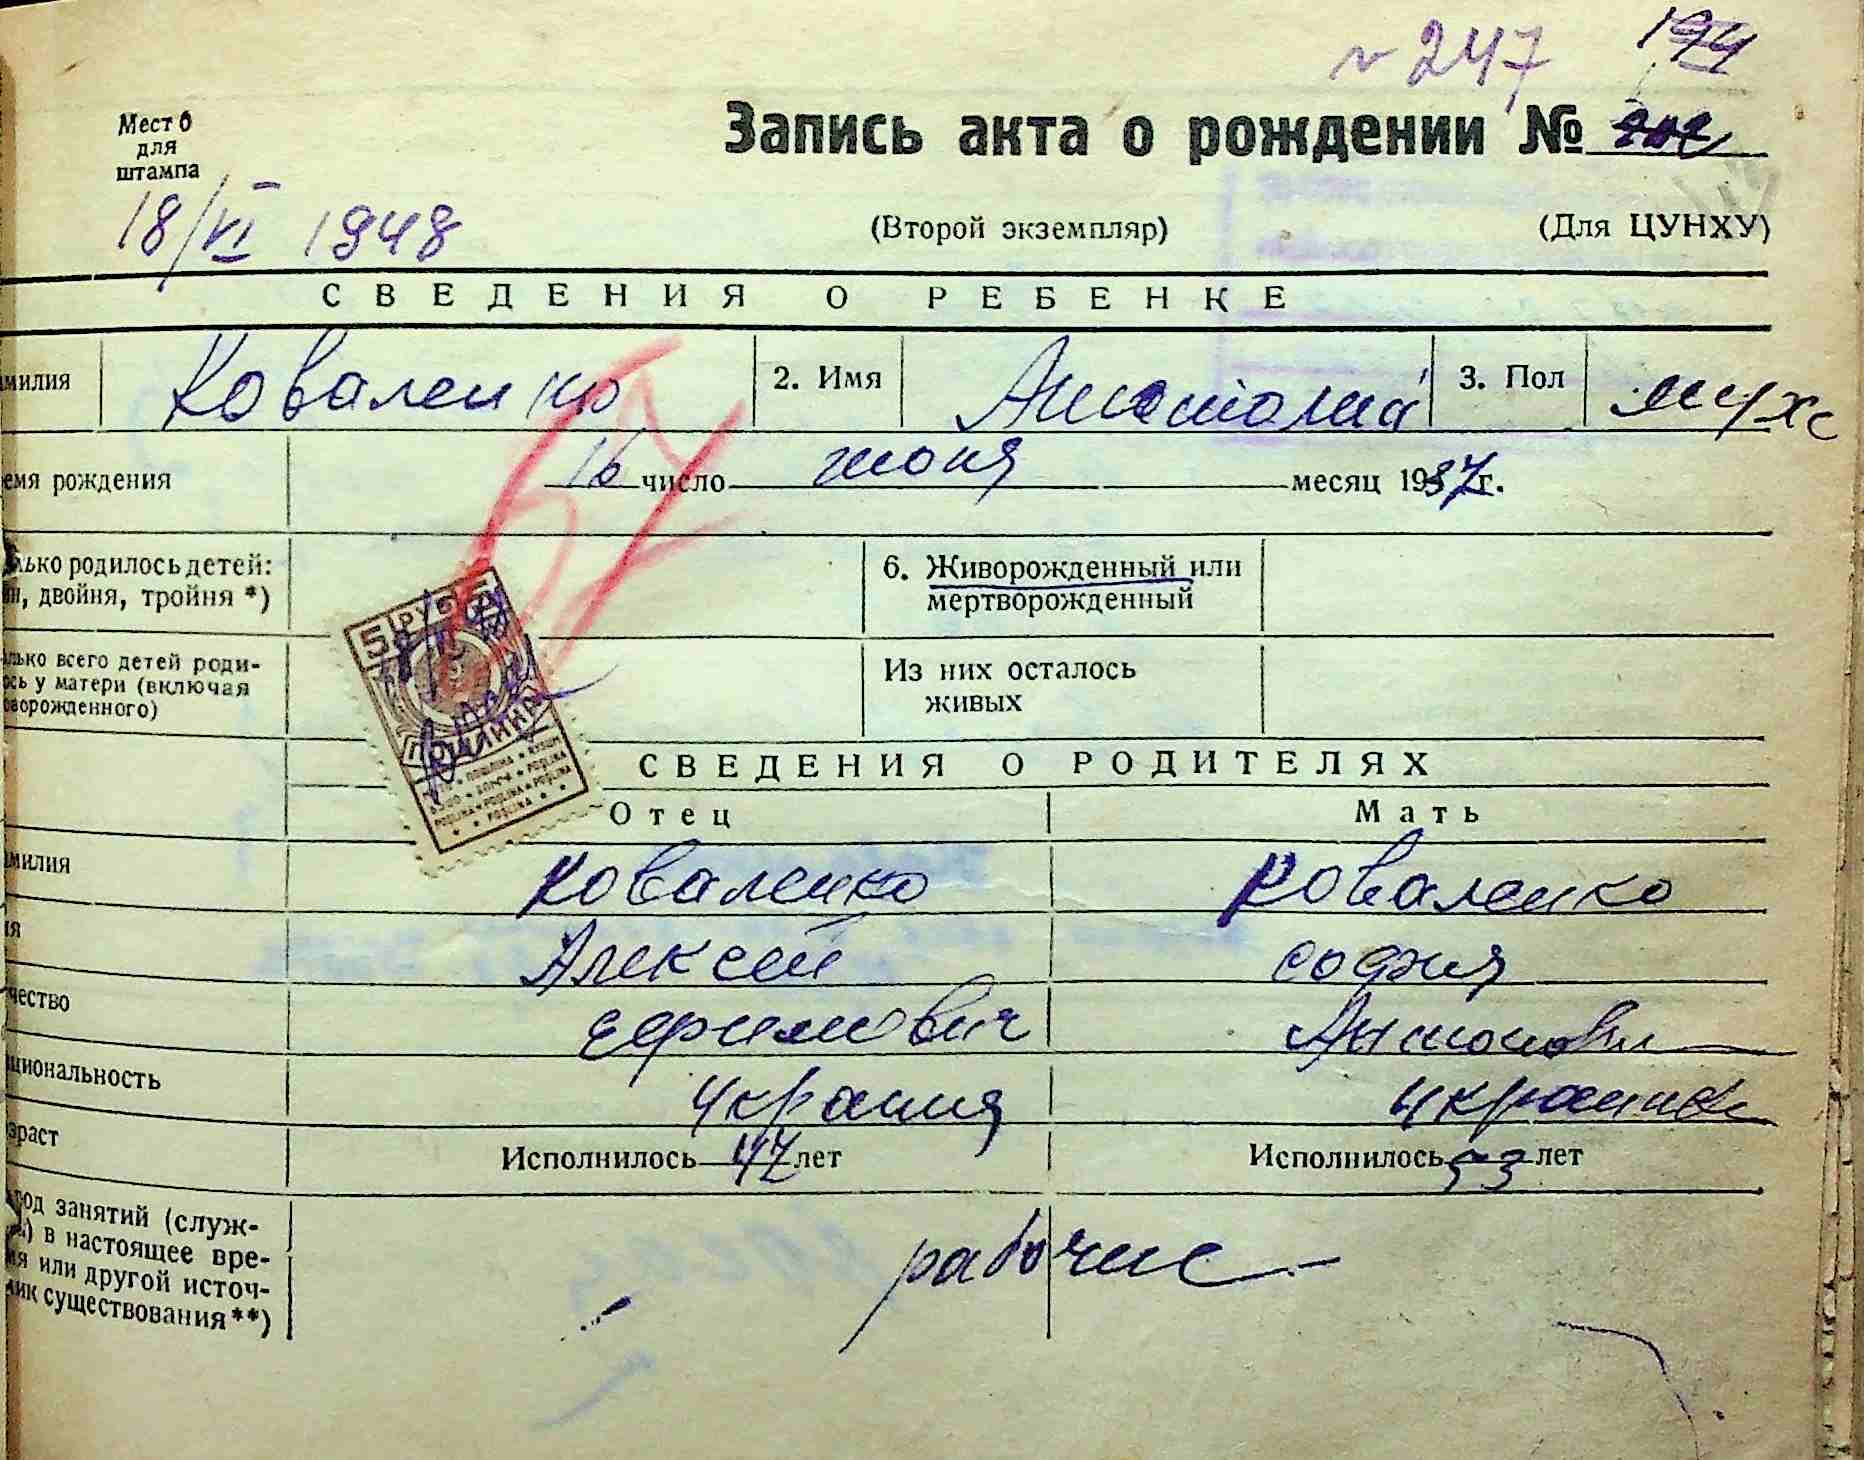 № 247 194
Место
для
штампа
Запись акта о рождении № 202
18/VI 1948
(Второй экземпляр) (Для ЦУНХУ)
СВЕДЕНИЯ О РЕБЕНКЕ
милия Коваленко 2. Имя Анатолий 3. Пол мужс
емя рождения 16 число июня месяц 1937г.
лько родилось детей:
н, двойня, тройня *)
6. Живорожденный или
мертворожденный
лько всего детей роди-
ось у матери (включая
оворожденного)
Из них осталось
живых
5 РУБ
ПОШЛИНА
СВЕДЕНИЯ О РОДИТЕЛЯХ
Отец Мать
милия Коваленко Коваленко
я Алексей София
чество Ефимович Антоновн
циональность украинц украинка
зраст Исполнилось 47 лет Исполнилось 33 лет
род занятий (служ-
) в настоящее вре-
мя или другой источ-
ник существования **)
рабочие